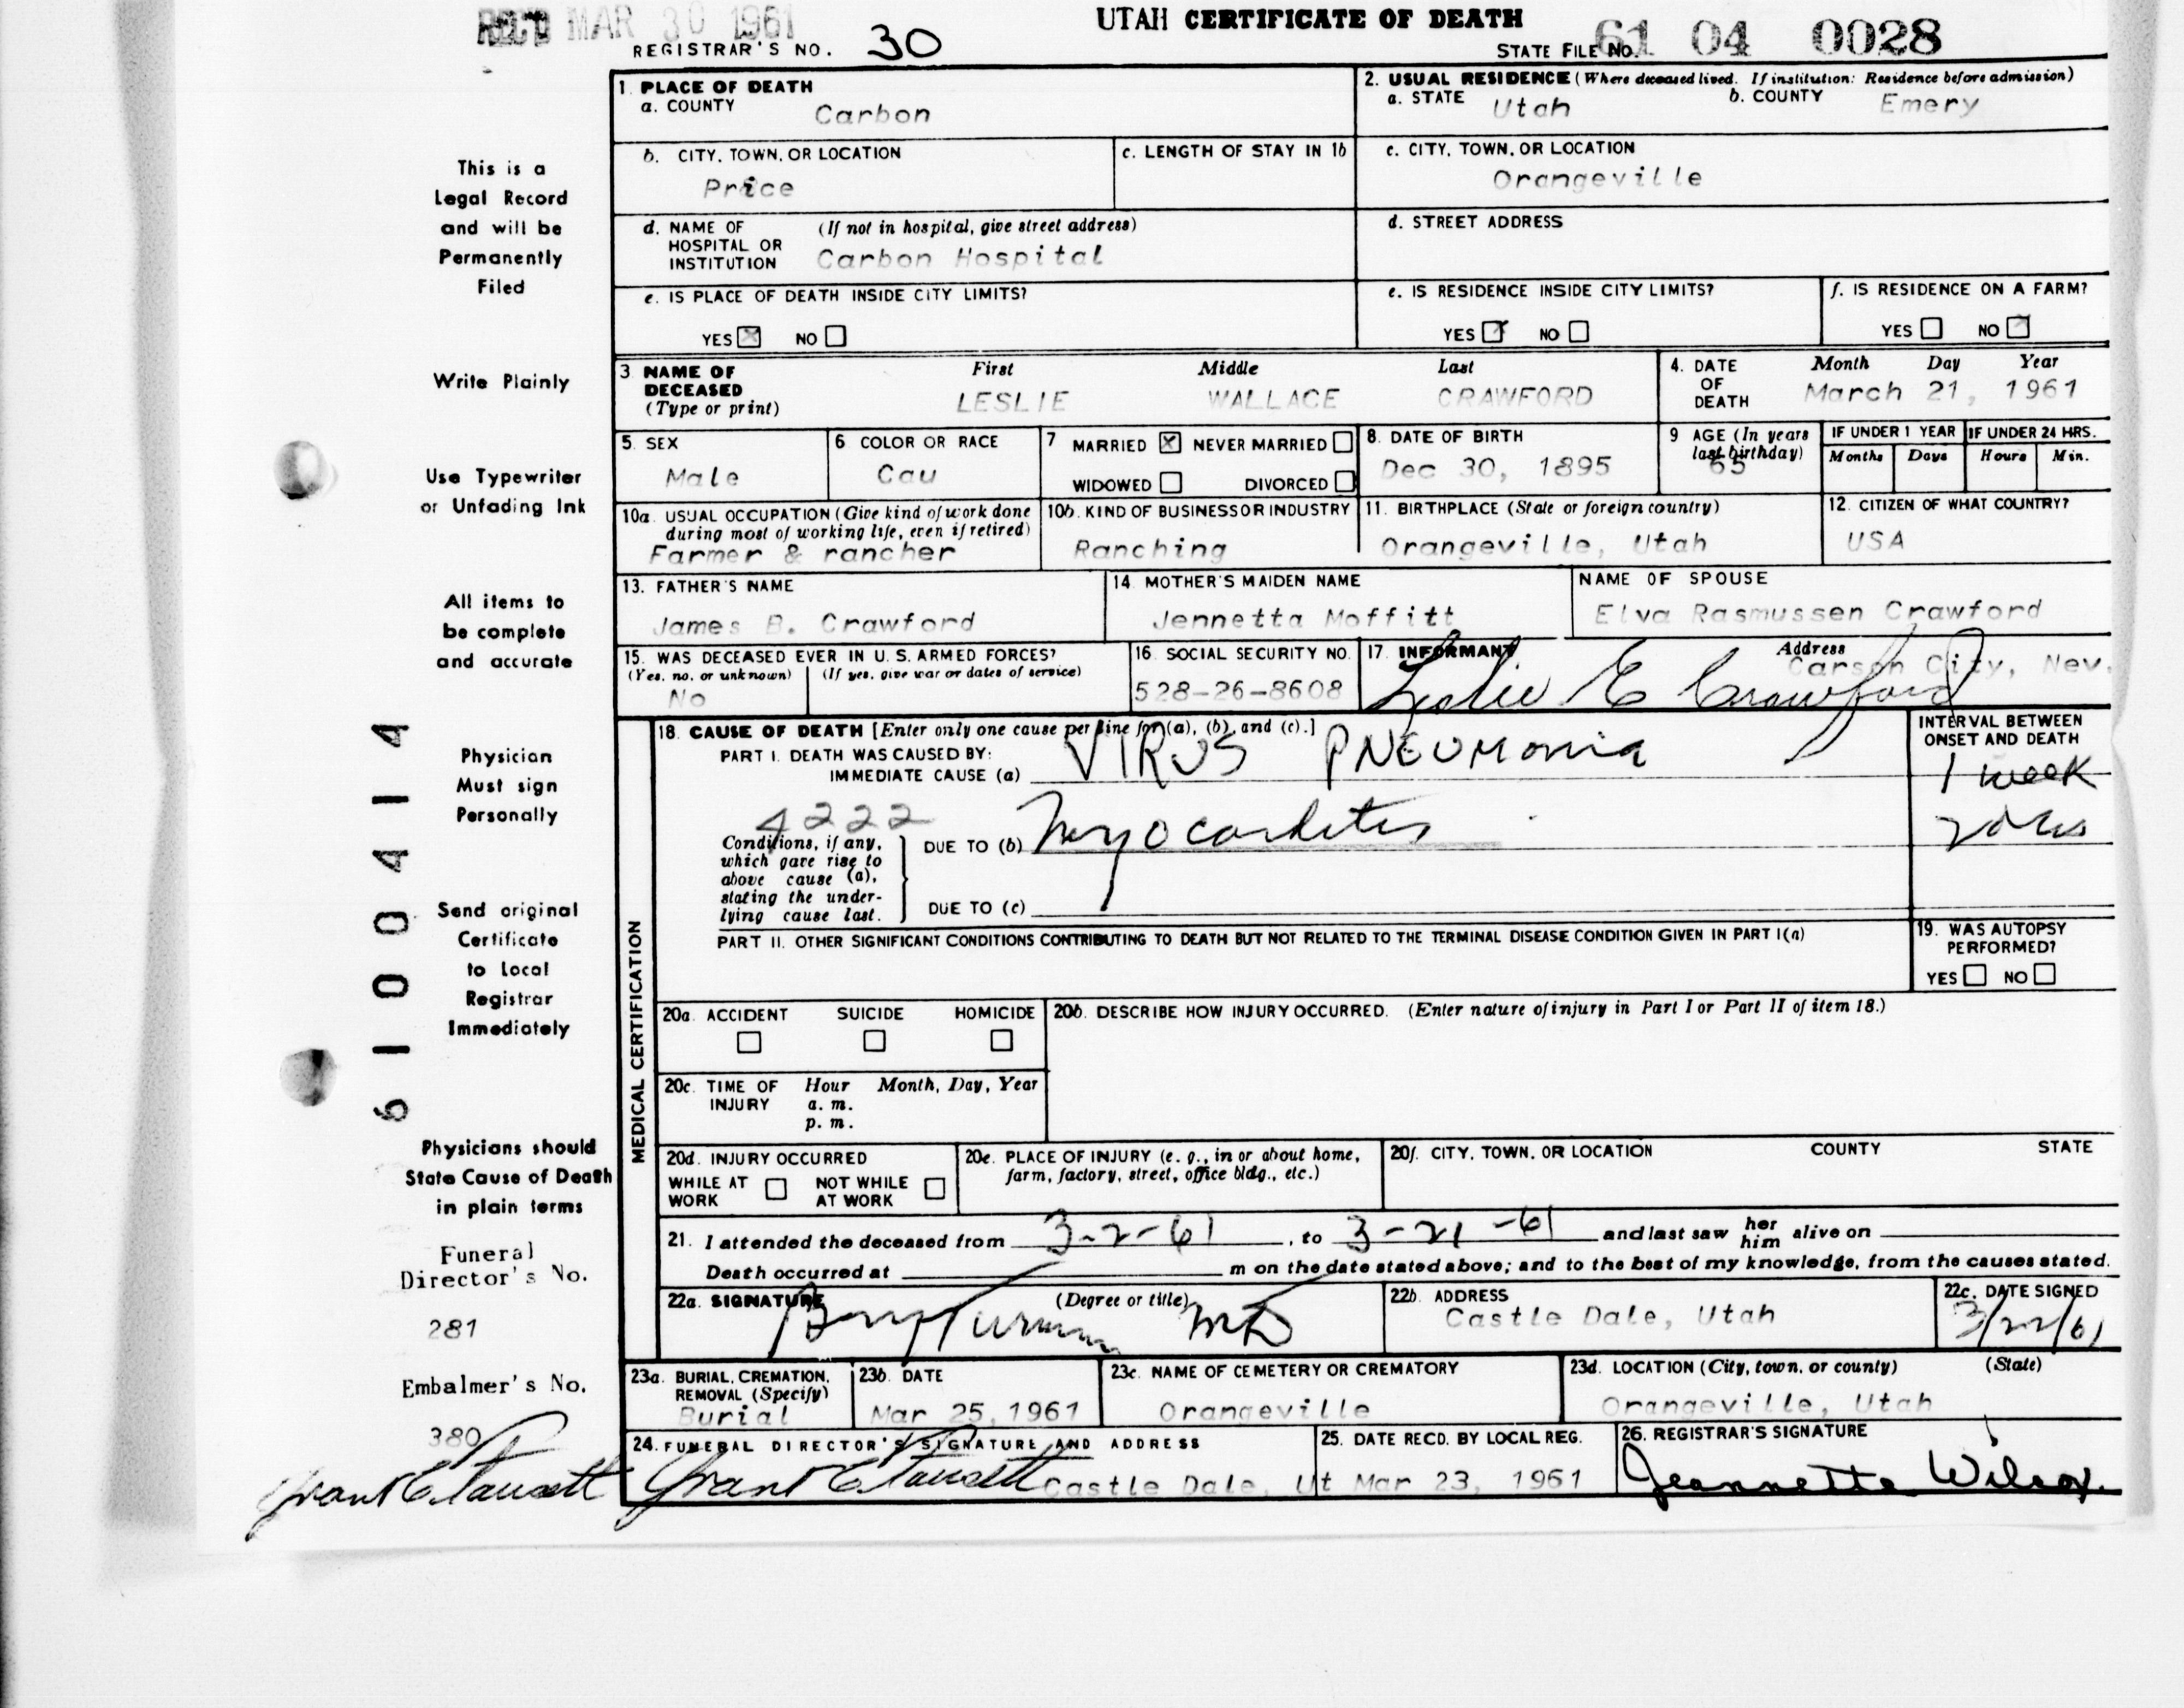 REC'D MAR 30 1961
UTAH CERTIFICATE OF DEATH
REGISTRAR'S NO. 30
STATE FILE No. 61 04 0028
This is a
Legal Record
and will be
Permanently
Filed
Write Plainly
Use Typewriter
or Unfading Ink
All items to
be complete
and accurate
Physician
Must sign
Personally
Send original
Certificate
to Local
Registrar
Immediately
Physicians should
State Cause of Death
in plain terms
Funeral
Director's No.
281
Embalmer's No.
380
6100414
1. PLACE OF DEATH
a. COUNTY Carbon
2. USUAL RESIDENCE (Where deceased lived. If institution: Residence before admission)
a. STATE Utah b. COUNTY Emery
b. CITY, TOWN, OR LOCATION
Price
c. LENGTH OF STAY IN 1b
c. CITY, TOWN, OR LOCATION
Orangeville
d. NAME OF HOSPITAL OR INSTITUTION (If not in hospital, give street address)
Carbon Hospital
d. STREET ADDRESS
e. IS PLACE OF DEATH INSIDE CITY LIMITS?
YES NO
e. IS RESIDENCE INSIDE CITY LIMITS?
YES NO
f. IS RESIDENCE ON A FARM?
YES NO
3 NAME OF DECEASED (Type or print)
First Middle Last
LESLIE WALLACE CRAWFORD
4. DATE OF DEATH
Month Day Year
March 21, 1961
5. SEX
Male
6 COLOR OR RACE
Cau
7 MARRIED NEVER MARRIED
WIDOWED DIVORCED
8. DATE OF BIRTH
Dec 30, 1895
9 AGE (In years last birthday)
65
IF UNDER 1 YEAR IF UNDER 24 HRS.
Months Days Hours Min.
10a. USUAL OCCUPATION (Give kind of work done during most of working life, even if retired)
Farmer & rancher
10b. KIND OF BUSINESS OR INDUSTRY
Ranching
11. BIRTHPLACE (State or foreign country)
Orangeville, Utah
12. CITIZEN OF WHAT COUNTRY?
USA
13. FATHER'S NAME
James B. Crawford
14 MOTHER'S MAIDEN NAME
Jennetta Moffitt
NAME OF SPOUSE
Elva Rasmussen Crawford
15. WAS DECEASED EVER IN U. S. ARMED FORCES?
(Yes, no, or unknown) (If yes, give war or dates of service)
No
16. SOCIAL SECURITY NO.
528-26-8608
17. INFORMANT Address
Leslie E Crawford Carson City, Nev.
MEDICAL CERTIFICATION
18. CAUSE OF DEATH [Enter only one cause per line for (a), (b), and (c).]
PART I. DEATH WAS CAUSED BY:
IMMEDIATE CAUSE (a) VIRUS PNEUMONIA
INTERVAL BETWEEN ONSET AND DEATH
1 week
4222
Conditions, if any, which gave rise to above cause (a), stating the underlying cause last.
DUE TO (b) Myocarditis
DUE TO (c)
PART II. OTHER SIGNIFICANT CONDITIONS CONTRIBUTING TO DEATH BUT NOT RELATED TO THE TERMINAL DISEASE CONDITION GIVEN IN PART I(a)
19. WAS AUTOPSY PERFORMED?
YES NO
20a. ACCIDENT SUICIDE HOMICIDE
20b. DESCRIBE HOW INJURY OCCURRED. (Enter nature of injury in Part I or Part II of item 18.)
20c. TIME OF INJURY Hour Month, Day, Year
a. m.
p. m.
20d. INJURY OCCURRED
WHILE AT WORK NOT WHILE AT WORK
20e. PLACE OF INJURY (e. g., in or about home, farm, factory, street, office bldg., etc.)
20f. CITY, TOWN, OR LOCATION COUNTY STATE
21. I attended the deceased from 3-2-61, to 3-21-61 and last saw her him alive on
Death occurred at m on the date stated above; and to the best of my knowledge, from the causes stated.
22a. SIGNATURE (Degree or title)
MD
22b. ADDRESS
Castle Dale, Utah
22c. DATE SIGNED
3/22/61
23a. BURIAL, CREMATION, REMOVAL (Specify)
Burial
23b. DATE
Mar 25, 1961
23c. NAME OF CEMETERY OR CREMATORY
Orangeville
23d. LOCATION (City, town, or county) (State)
Orangeville, Utah
24. FUNERAL DIRECTOR'S SIGNATURE AND ADDRESS
Grant E Castle Dale, Ut
25. DATE RECD. BY LOCAL REG.
Mar 23, 1961
26. REGISTRAR'S SIGNATURE
Jeannette Wilcox.
Grant E